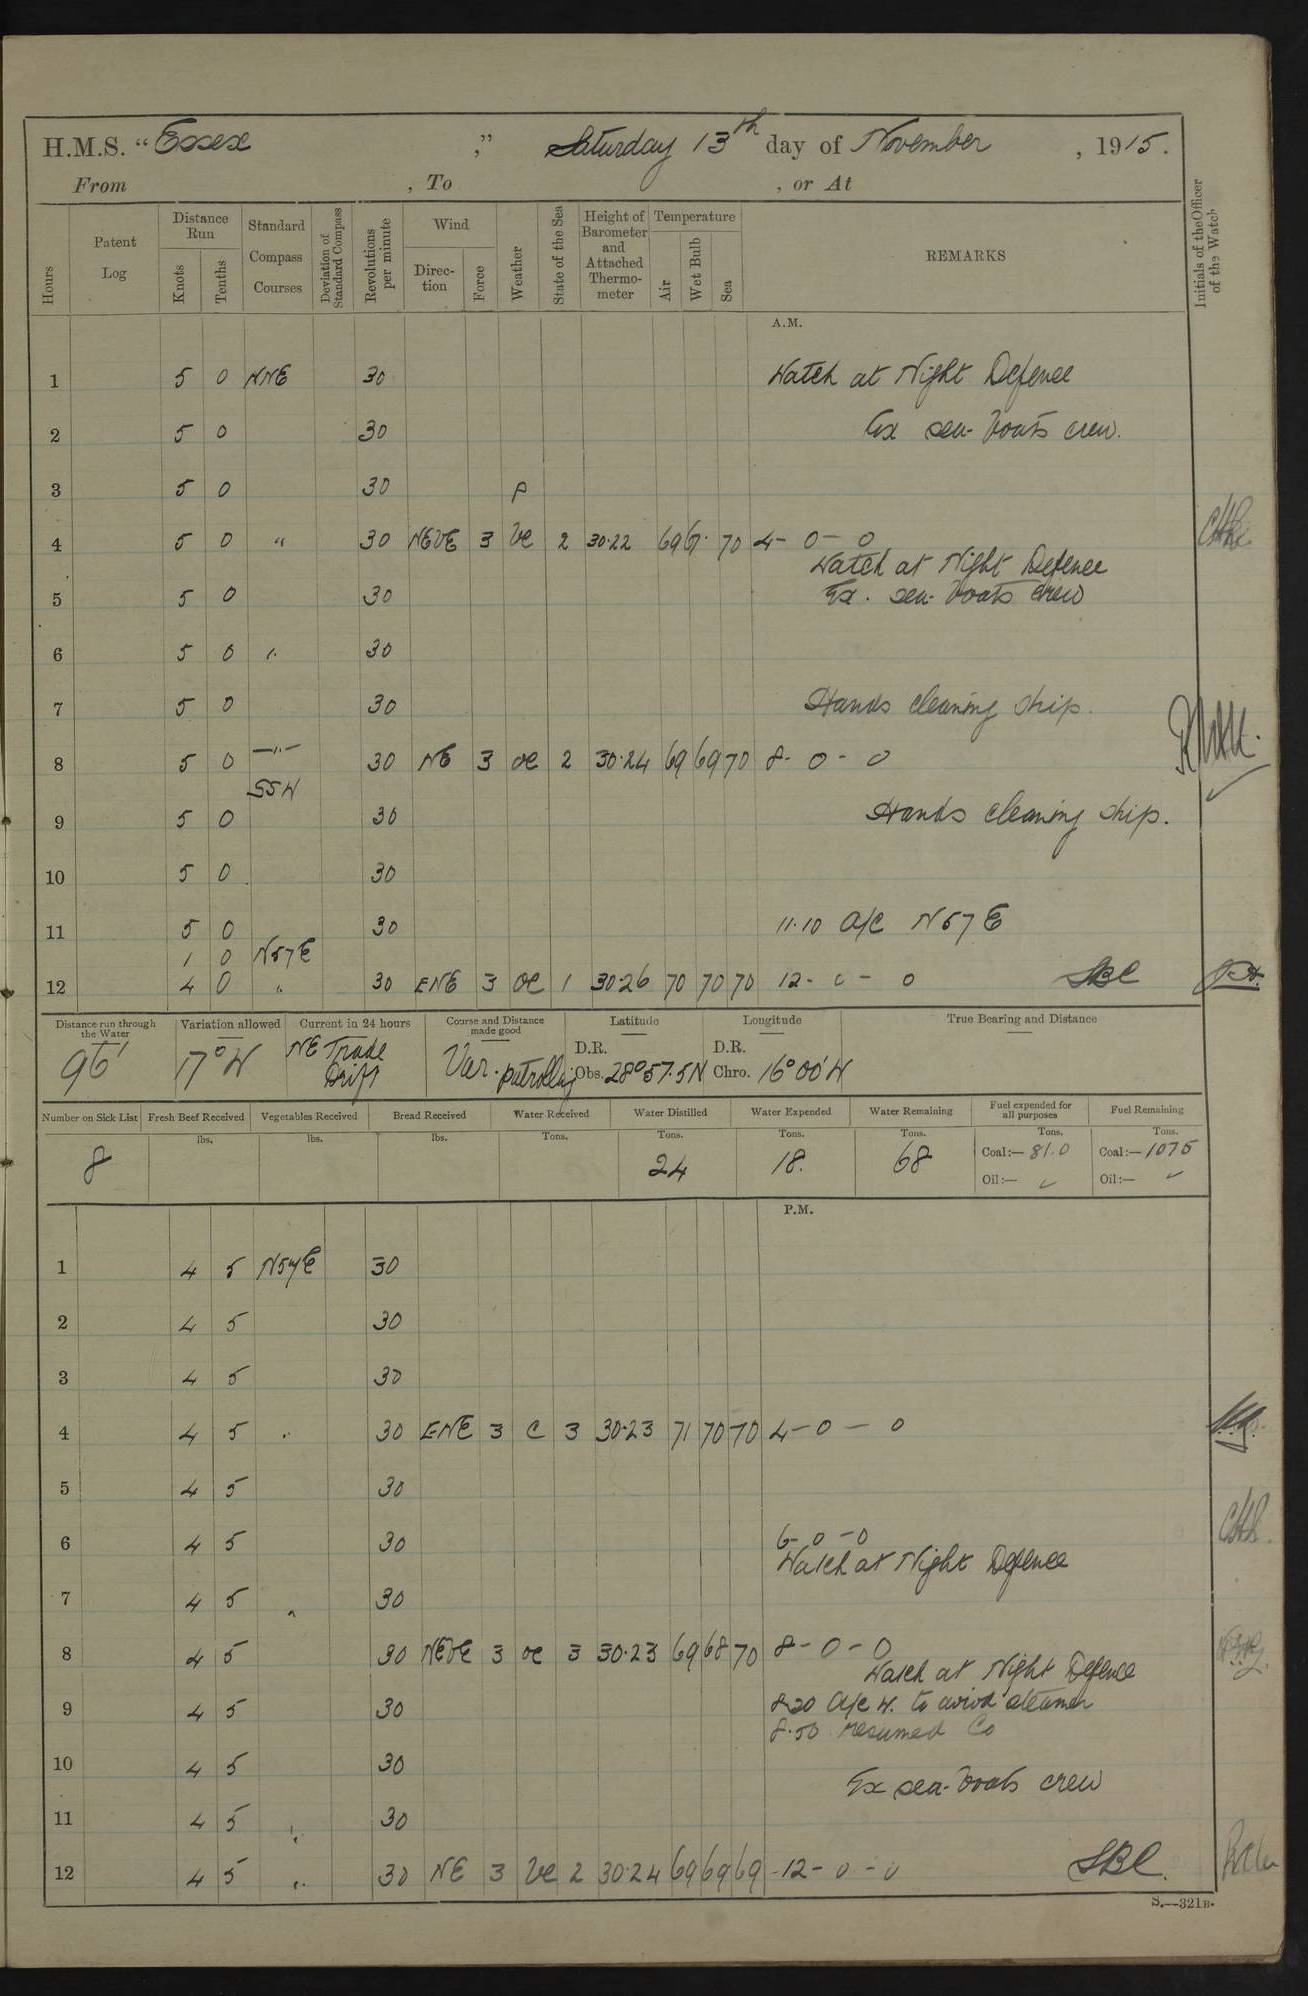 H.M.S. "Essex ," Saturday 13th day of November , 1915.
From , To , or At
Hours Patent Log Distance Run Knots Tenths Standard Compass Courses Deviation of Standard Compass Revolutions per minute Wind Direction Force Weather State of the Sea Height of Barometer and Attached Thermometer Temperature Air Wet Bulb Sea REMARKS Initials of the Officer of the Watch
A.M.
1 5 0 NNE 30 Watch at Night Defence
2 5 0 30 Ex sea-boats crew.
3 5 0 30 p
4 5 0 " 30 NEbE 3 bc 2 30.22 69 67 70 4-0-0
Watch at Night Defence
5 5 0 30 Ex. sea-boats crew
6 5 0 " 30
7 5 0 30 Hands cleaning ship.
8 5 0 —"— 30 NE 3 oc 2 30.24 69 69 70 8-0-0
SSW
9 5 0 30 Hands cleaning ship.
10 5 0 30
11 5 0 30 11.10 A/c N57E
1 0 N57E
12 4 0 " 30 ENE 3 oc 1 30.26 70 70 70 12-0-0 SBC
Distance run through the Water Variation allowed Current in 24 hours Course and Distance made good Latitude Longitude True Bearing and Distance
96' 17°W NE Trade Drift Var. patrolling D.R. Obs. 28°57.5N D.R. Chro. 16°00'W
Number on Sick List Fresh Beef Received Vegetables Received Bread Received Water Received Water Distilled Water Expended Water Remaining Fuel expended for all purposes Fuel Remaining
lbs. lbs. lbs. Tons. Tons. Tons. Tons. Tons. Tons.
8 24 18. 68 Coal:— 81.0 Coal:— 1075
Oil:— ✓ Oil:— ✓
P.M.
1 4 5 N54E 30
2 4 5 30
3 4 5 30
4 4 5 " 30 ENE 3 c 3 30.23 71 70 70 4-0-0
5 4 5 30
6 4 5 30 6-0-0
Watch at Night Defence
7 4 5 " 30
8 4 5 30 NEbE 3 oc 3 30.23 69 68 70 8-0-0
Watch at Night Defence
9 4 5 30 8.20 A/c W. to avoid steamer
8.50 resumed Co
10 4 5 30 Ex sea-boats crew
11 4 5 " 30
12 4 5 " 30 NE 3 bc 2 30.24 69 69 69 12-0-0 SBC.
S.—321B.